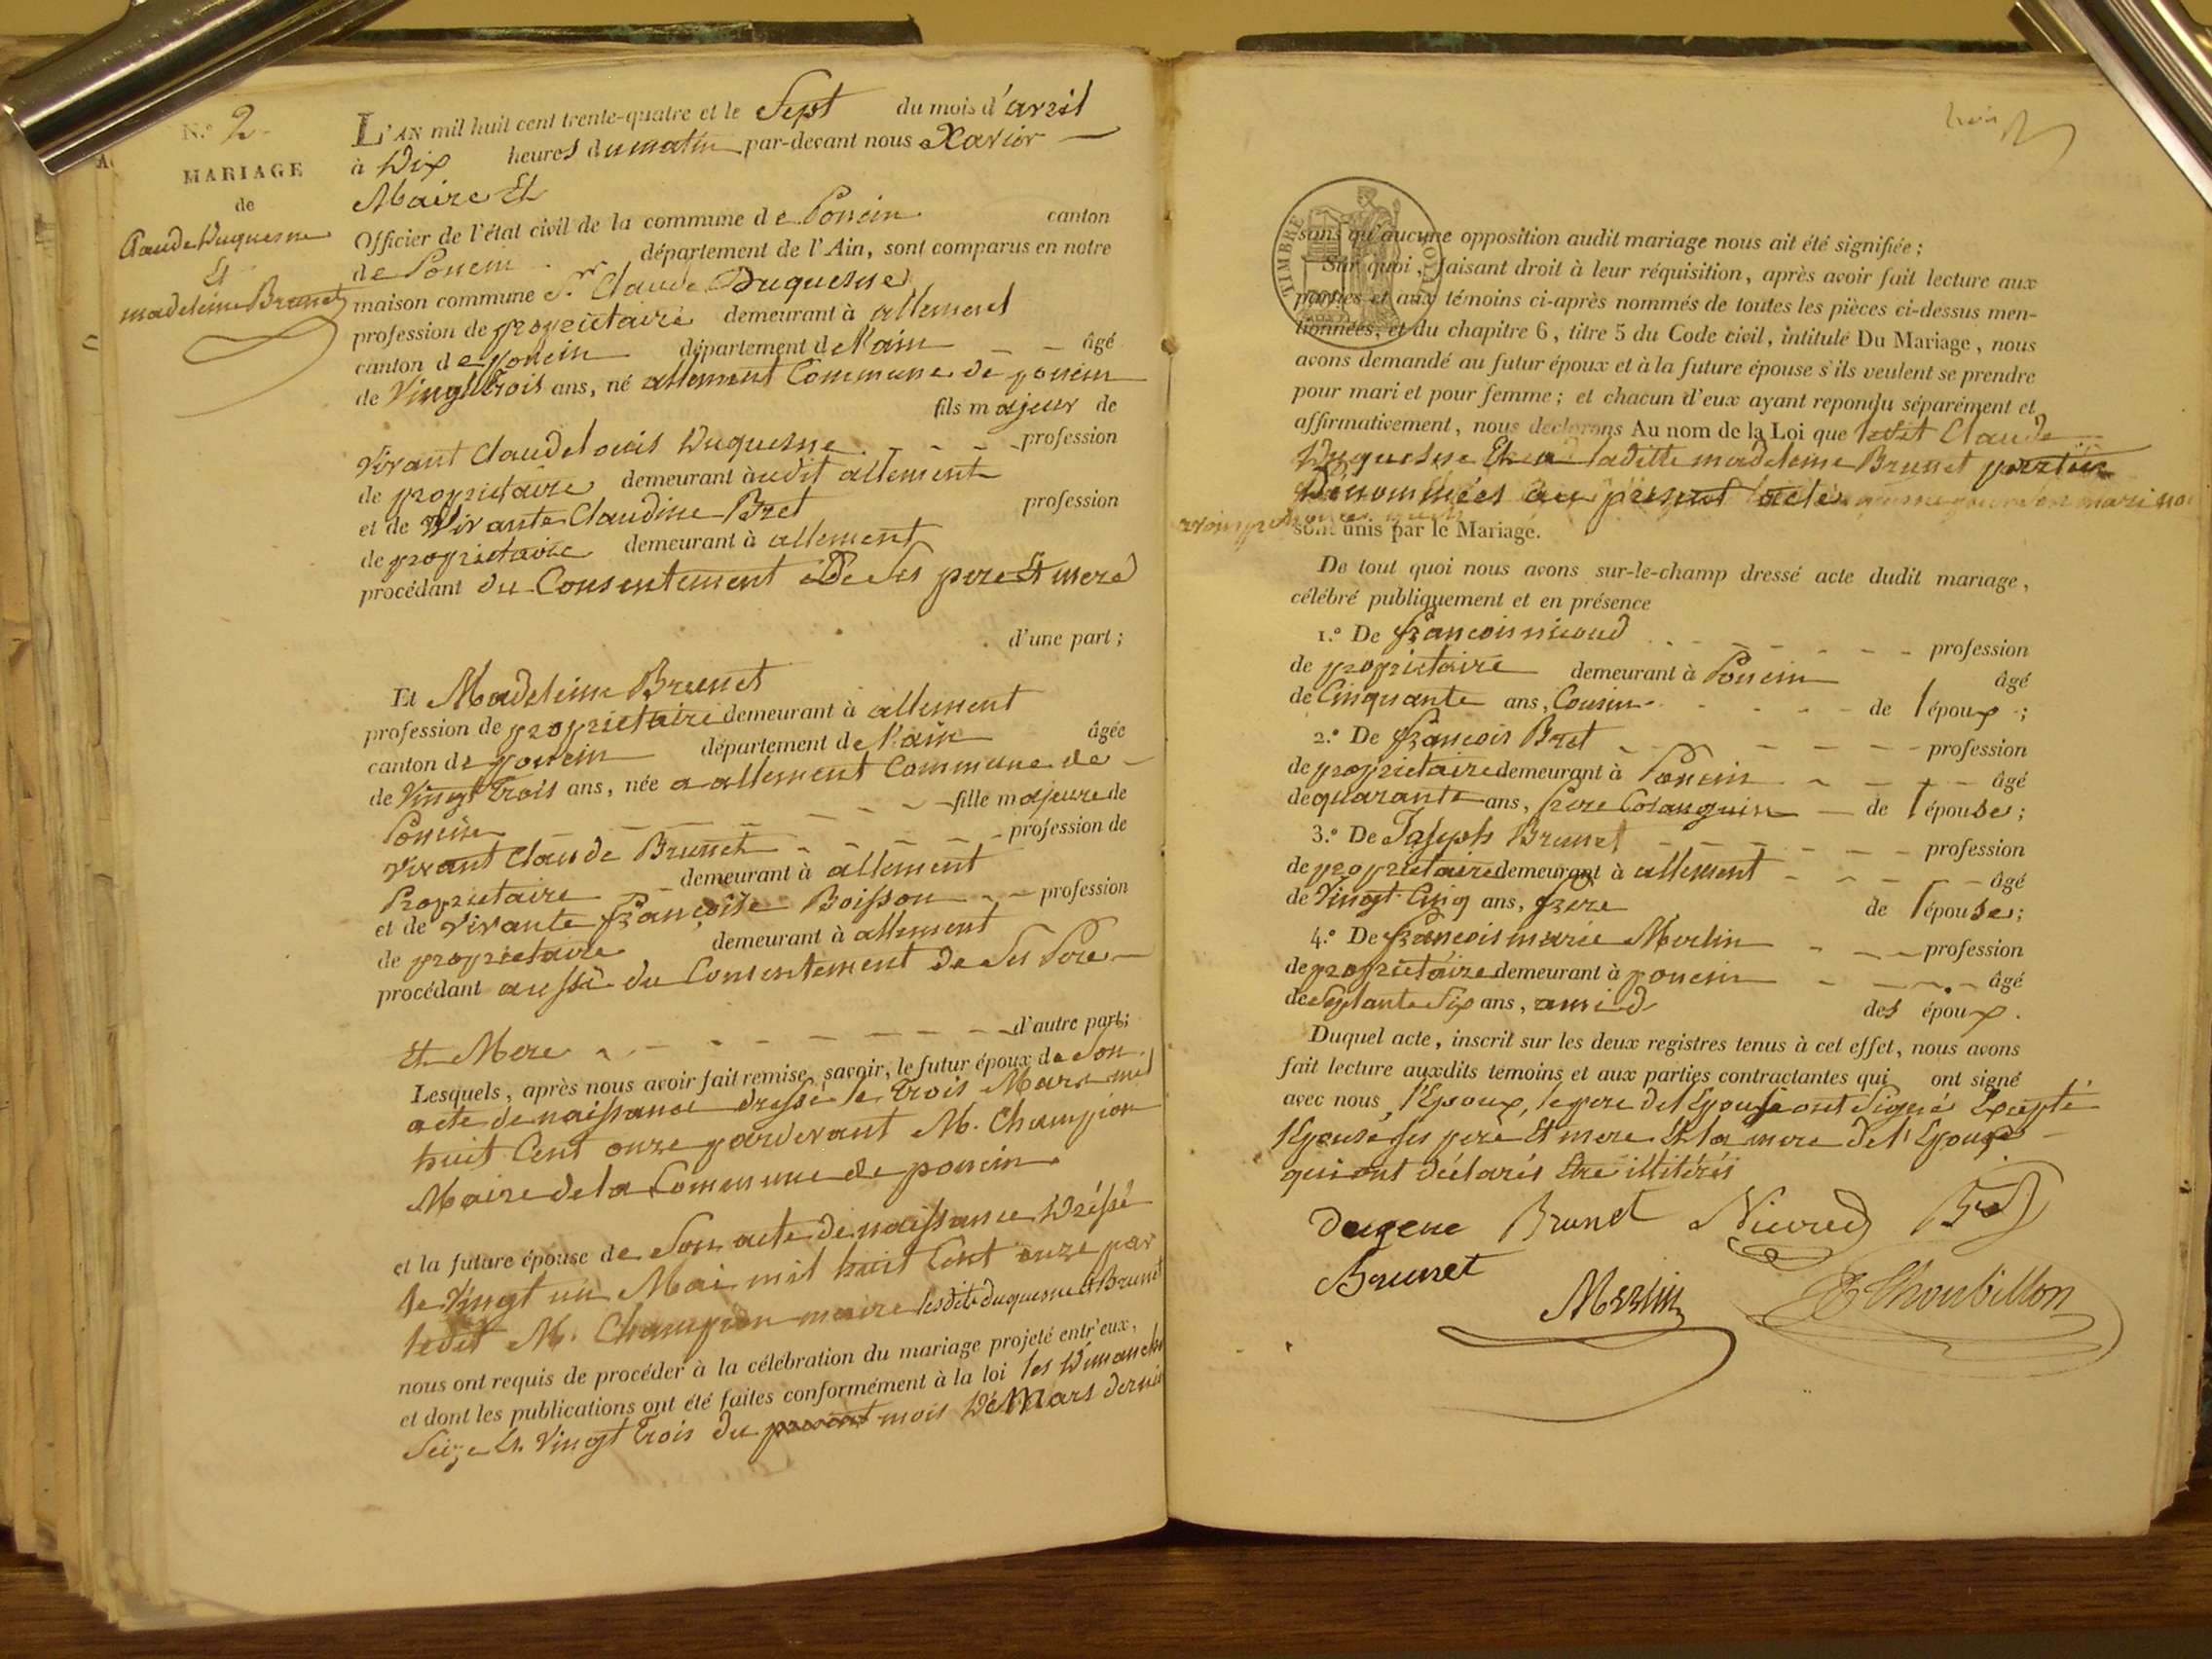 N.º 2
MARIAGE
de
Claude Duquesne
Et
madeleine Brunet
L'AN mil huit cent trente-quatre et le Sept du mois d'avril
à Dix heures du matin par-devant nous Xavier
Maire Et
Officier de l'état civil de la commune de Poncin canton
de Poncin département de l'Ain, sont comparus en notre
maison commune Sr Claude Duquesne
profession de proprietaire demeurant à allement
canton de poncin département de l'ain âgé
de Vingt trois ans, né allement Commune de poncin
fils majeur de
Vivant Claude louis Duquesne profession
de proprietaire demeurant àudit allement
et de Vivante Claudine Bret profession
de proprietaire demeurant à allement
procédant du Consentement de Ses pere Et mere
d'une part;
Et Madeleine Brunet
profession de proprietaire demeurant à allement
canton de poncin département de l'ain âgée
de Vingt trois ans, née a allement Commune de
Poncin fille majeure de
Vivant Claude Brunet profession de
Proprietaire demeurant à allement
et de Vivante françoise Boisson profession
de proprietaire demeurant à allement
procédant aussi du Consentement de Ses Pere
Et Mere d'autre part;
Lesquels, après nous avoir fait remise, savoir, le futur époux de Son
acte de naissance dressé le trois Mars mil
huit Cent onze pardevant M. Champion
Maire de la Commune de poncin
et la future épouse de Son acte de naissance Dréssé
le Vingt un Mai mil huit Cent onze par
ledit M. Champion maire lesdits duquesne et Brunet
nous ont requis de procéder à la célébration du mariage projeté entr'eux,
et dont les publications ont été faites conformément à la loi les Dimanches
Seize Et Vingt trois du present mois De Mars dernier
TIMBRE ROYAL
sans qu'aucune opposition audit mariage nous ait été signifiée;
Sur quoi, faisant droit à leur réquisition, après avoir fait lecture aux
parties et aux témoins ci-après nommés de toutes les pièces ci-dessus men-
tionnées, et du chapitre 6, titre 5 du Code civil, intitulé Du Mariage, nous
avons demandé au futur époux et à la future épouse s'ils veulent se prendre
pour mari et pour femme; et chacun d'eux ayant repondu séparément et
affirmativement, nous declarons Au nom de la Loi que ledit Claude
Duquesne Et ladite madeleine Brunet parties
Dénommées au present acte
sont unis par le Mariage.
De tout quoi nous avons sur-le-champ dressé acte dudit mariage,
célébré publiquement et en présence
1.º De françois nicoud profession
de proprietaire demeurant à Poncin âgé
de Cinquante ans, Cousin de l'époux;
2.º De françois Bret profession
de proprietaire demeurant à Poncin âgé
de quarante ans, frere Cosanguin de l'épouse;
3.º De Joseph Brunet profession
de proprietaire demeurant à allement âgé
de Vingt Cinq ans, frere de l'épouse;
4.º De françois marie Merlin profession
de proprietaire demeurant à poncin âgé
de Septante Six ans, ami d des époux.
Duquel acte, inscrit sur les deux registres tenus à cet effet, nous avons
fait lecture auxdits temoins et aux parties contractantes qui ont signé
avec nous, l'Epoux, le pere de l'Epouse ont Signé Excepté
l'Epouse Ses pere Et mere Et la mere de l'Epoux
qui ont déclarés Etre illitérés
Brunet Bret
Brunet
Merlin